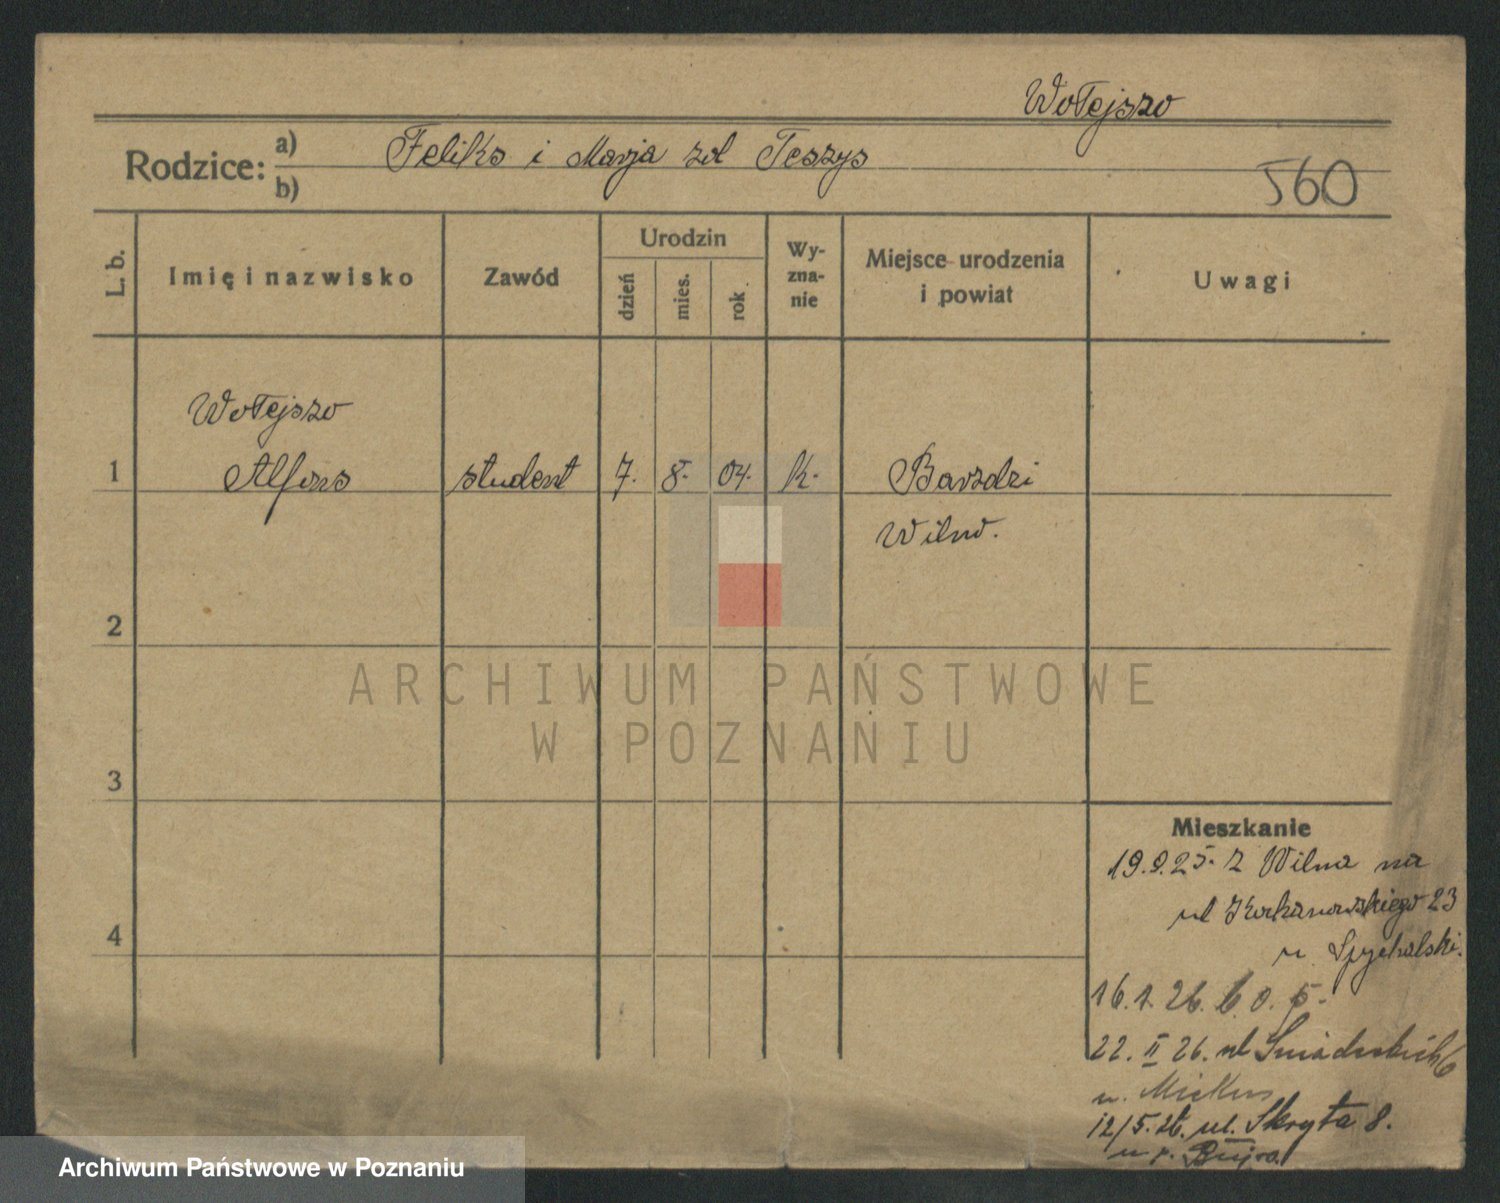 Wołejszo
Rodzice: a) Feliks i Marja zd Teszys
b)
560
L. b.
Imię i nazwisko
Zawód
Urodzin
dzień
mies.
rok
Wy-
zna-
nie
Miejsce urodzenia
i powiat
Uwagi
Wołejszo
1 Alfons student 7. 8. 04. k. Barzdzi
Wilno.
2
3
4
Mieszkanie
19.9.25. z Wilna na
ul 23
u Spychalski.
16.1.26.
22. II 26. ul Śniadeckich 6
u.
12/5.26. ul. Skryta 8.
u p.
ARCHIWUM PAŃSTWOWE
W POZNANIU
Archiwum Państwowe w Poznaniu